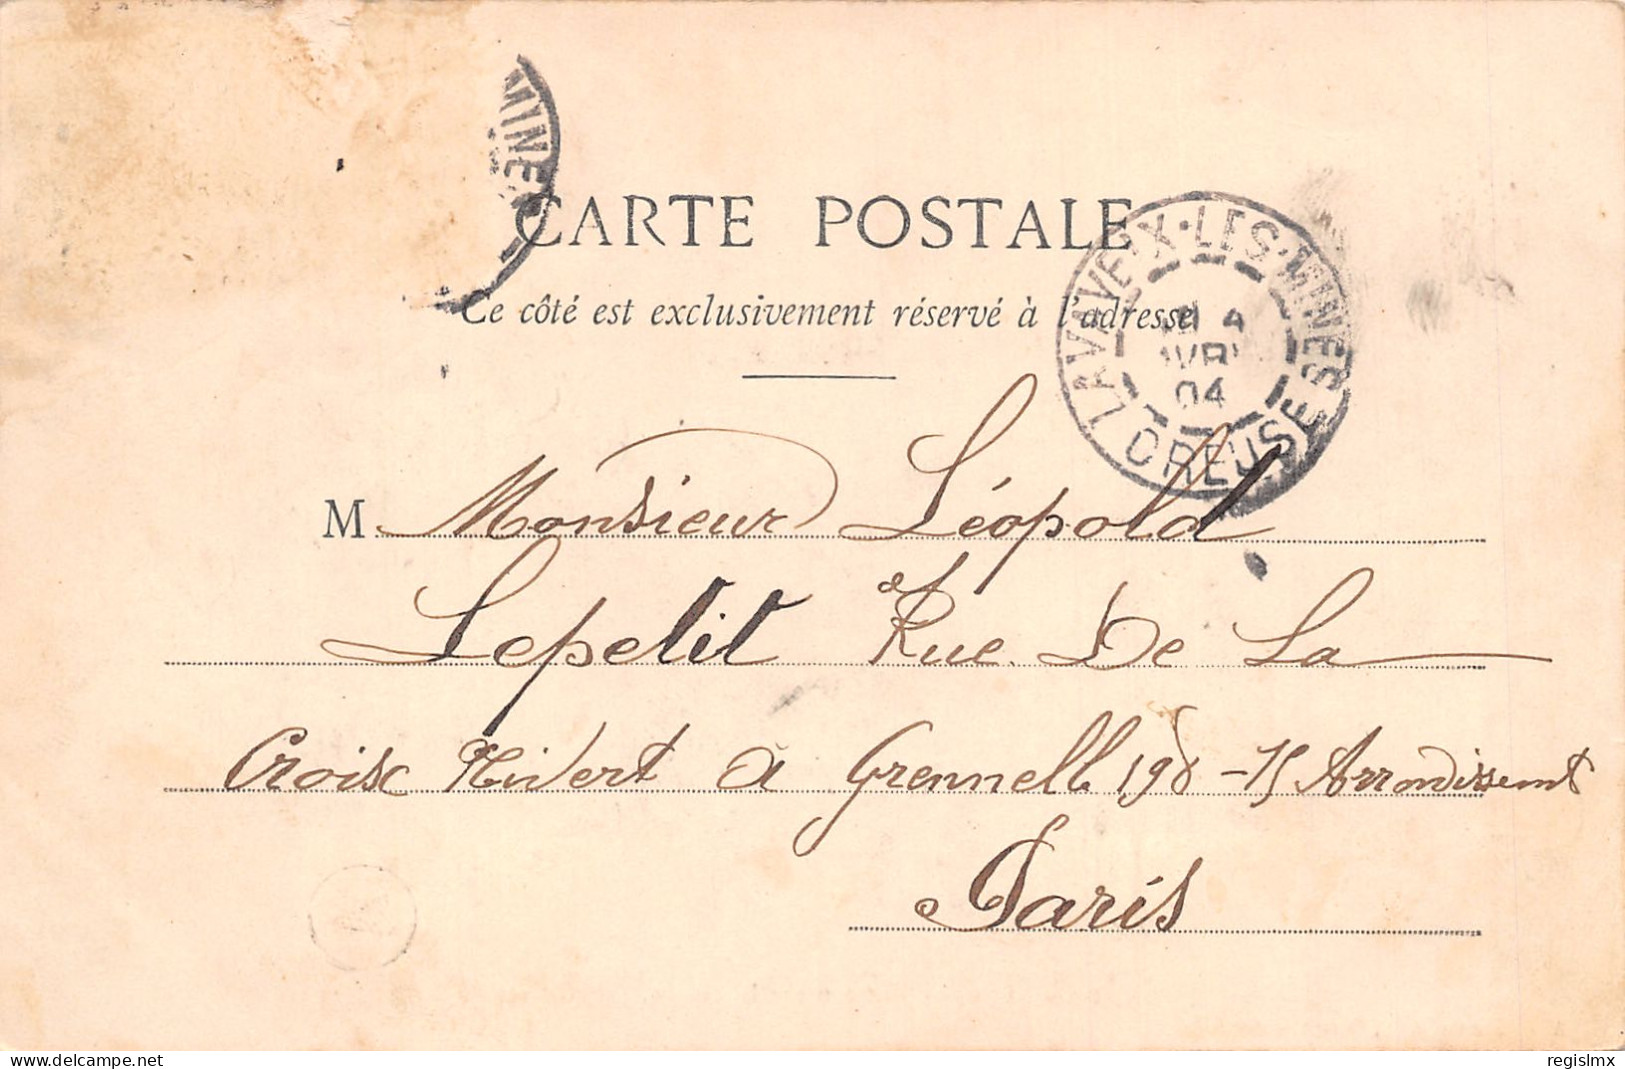 MINE
CARTE POSTALE
Ce côté est exclusivement réservé à l'adresse
LAVAVEIX·LES·MINES
4
AVRIL
04
CREUSE
M. Monsieur Léopold
Lepetit Rue De La
Croise Nivert à Grennelle 198 - 15 Arrondissemt
Paris
www.delcampe.net
regislmx